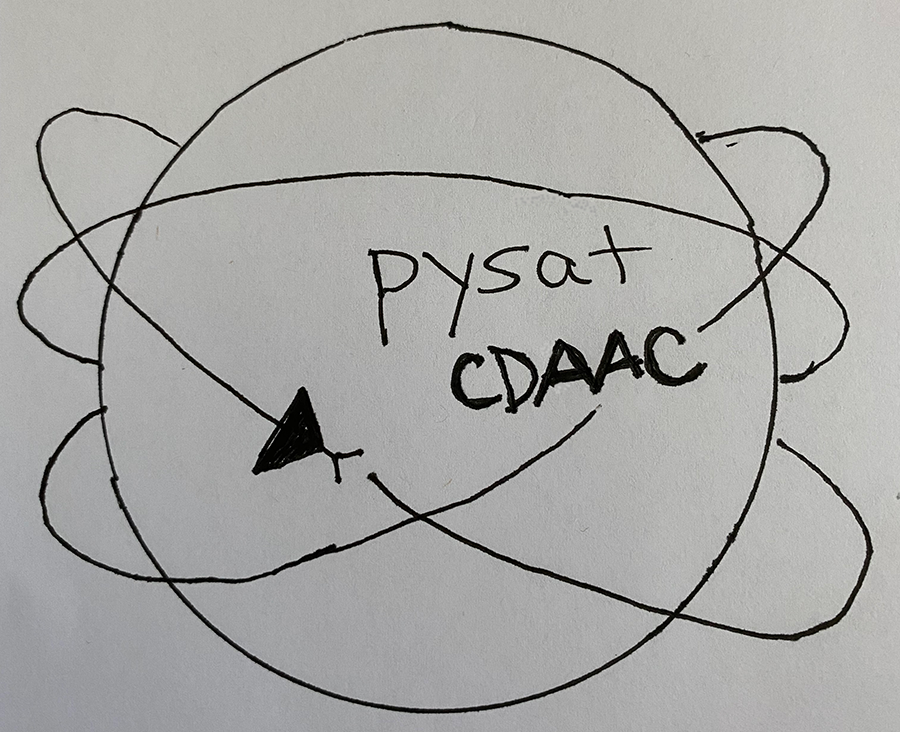 pysat
CDAAC